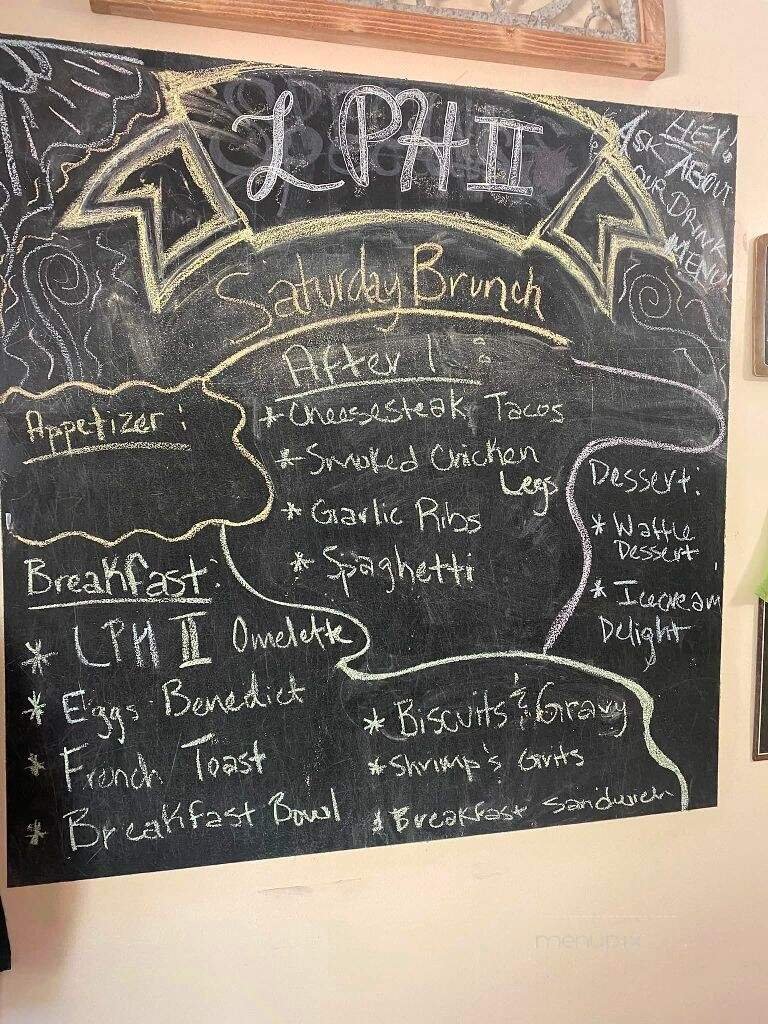 LPH II
HEY!
ASK ABOUT
OUR DRINK
MENU!
Saturday Brunch
After 1:
*Cheesesteak Tacos
*Smoked Chicken
Legs
*Garlic Ribs
*Spaghetti
Appetizer:
Dessert:
*Waffle
Dessert
*Icecream
Delight
Breakfast:
*LPH II Omelette
*Eggs Benedict
*French Toast
*Breakfast Bowl
*Biscuits & Gravy
*Shrimp & Grits
*Breakfast Sandwich
menupix